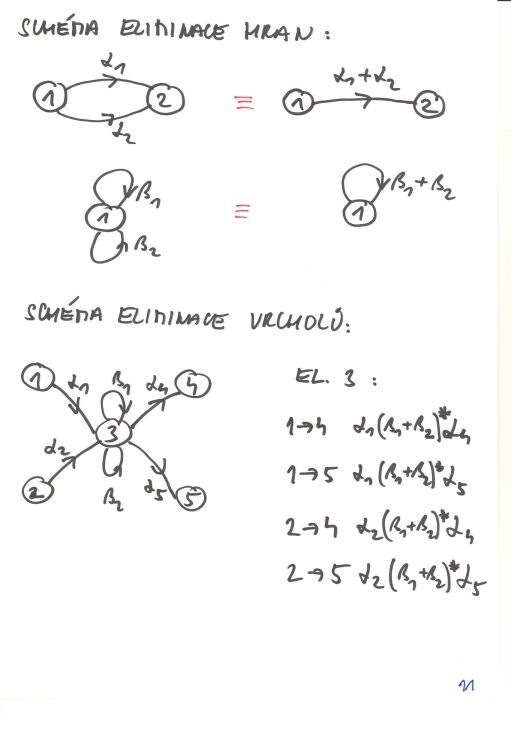 SCHÉMA ELIMINACE HRAN:
α₁
1 2 ≡ 1 α₁+α₂ 2
α₂
β₁
1 ≡ 1 β₁+β₂
β₂
SCHÉMA ELIMINACE VRCHOLŮ:
1 α₁ β₁ α₄ 4
3
2 α₂ β₂ α₅ 5
EL. 3 :
1→4 α₁(β₁+β₂)*α₄
1→5 α₁(β₁+β₂)*α₅
2→4 α₂(β₁+β₂)*α₄
2→5 α₂(β₁+β₂)*α₅
21